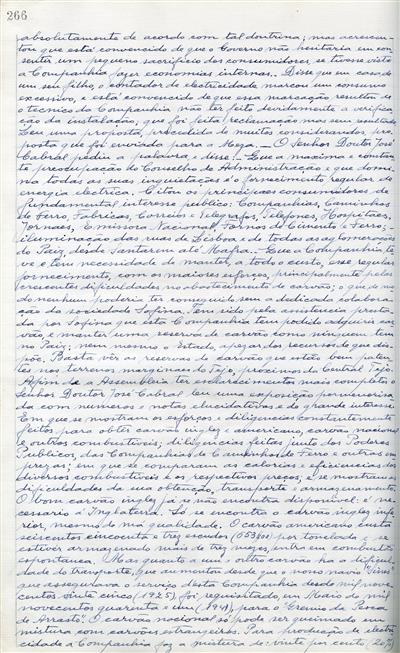 266
absolutamente de acordo com tal doutrina; mas acrescen-
tou que está convencido de que o Governo não hesitaria em con-
sentir um pequeno sacrifício dos consumidores, se tivesse visto
a Companhia fazer economias internas. Disse que em casa de
um seu filho, o contador de electricidade marcou um consumo
excessivo, e está convencido de que essa marcação resultou de
o técnico da Companhia não ter feito devidamente a verifica-
ção da instalação, que foi feita reclamação mas sem resultado.
Leu uma proposta, precedida de muitos considerandos, pro-
posta que foi enviada para a Mesa. — O Senhor Doutor José
Cabral pediu a palavra e disse: — Que a maxima e constan-
te preocupação do Conselho de Administração e que domi-
na todas as suas inquietações é o fornecimento regular de
energia electrica. Citou os principaes consumidores de
fundamental interesse publico: Companhias, Caminhos
de Ferro, Fabricas, Correios e Telegrafos, Telefones, Hospitaes,
Jornaes, Emissora Nacional, Fornos de Cimento e Ferro;
iluminação das ruas de Lisboa e de todas as aglomerações
do Paiz, desde Santarem até Mafra. — Que a Companhia te-
ve e tem necessidade de manter, a todo o custo, esse regular
fornecimento, com os maiores esforços, principalmente pelas
crescentes dificuldades no abastecimento de carvão; o que de mo-
do nenhum poderia ter conseguido sem a dedicada colabora-
ção da sociedade Sofina. Tem sido pela assistencia presta-
da por Sofina que esta Companhia tem podido adquirir car-
vão e manter uma reserva de carvão como ninguem tem
no Paiz; nem mesmo o Estado, apezar dos recursos de que dis-
põe. Basta vêr as reservas de carvão que estão bem paten-
tes nos terrenos marginaes do Tejo, proximos da Central Tejo.
Afim de a Assembleia ter esclarecimentos mais completos o
Senhor Doutor José Cabral leu uma exposição pormenorisa-
da com numeros e notas elucidativas e de grande interesse.
Em que se mostram os esforços e diligencias constantemente
feitos para obter carvão inglez e americano, carvão nacional
e outros combustiveis; diligencias feitas junto dos Poderes
Publicos, das Companhias de Caminhos de Ferro e outras em-
prezas; em que se comparam as calorias e eficiencias dos
diversos combustiveis e os respectivos preços; e se mostram as
dificuldades da sua obtenção, transporte e armazenamento.
O bom carvão inglez já se não encontra disponivel: é ne-
cessario á Inglaterra. Só se encontra o carvão inglez infe-
rior, mesmo de má qualidade. O carvão americano custa
seiscentos cincoenta e trez escudos (653$00) por tonelada e se
estiver armazenado mais de trez mezes, entra em combustão
espontanea. Mas quanto a um e outro carvão ha a dificul-
dade do transporte, que aumentou desde que o nosso navio
que assegurava o serviço desta Companhia desde mil nove-
centos vinte cinco (1925), foi requisitado, em Maio de mil
novecentos quarenta e um (1941), para o "Gremio da Pesca
de Arrasto". O carvão nacional só pode ser queimado em
mistura com carvões estrangeiros. Para producção de electri-
cidade a Companhia faz a mistura de: vinte por cento (20%)